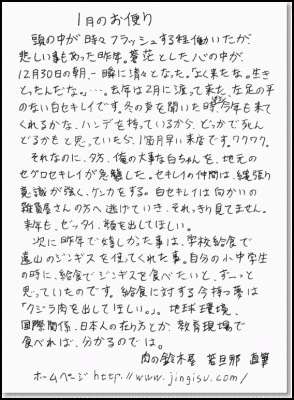 1月のお便り
頭の中が時々フラッシュする程働いたが、
悲しい事もあった昨年。蒼茫とした心の中が、
12月30日の朝、一瞬に清々となった。「よく来たな。生き
とったんだな。」…。去年は2月に渡って来た、左足の子
のない白セキレイです。冬の声を聞いた時、今年も来て
くれるかな、ハンデを持っているから、どっかで死ん
どるかもと思っていたら、1ヶ月早い来店です。ワクワク。
それなのに、夕方、俺の大事な白ちゃんを、地元の
セグロセキレイが急襲した。セキレイの仲間は、縄張り
意識が強く、ケンカをする。白セキレイは向かいの
雑貨屋さんの方へ逃げていき、それっきり見てません。
来年も、ゼッタイ、顔を出してほしい。
次に昨年で嬉しかった事は、学校給食で
遠山のジンギスを使ってくれた事。自分の小中学生
の時に、給食でジンギスを食べたいと、ずーっと
思っていたのです。給食に対する今持つ夢は
「クジラ肉を出してほしい。」。地球環境、
国際関係、日本人の在り方とか、教育現場で
食べれば、分かるのでは。
肉の鈴木屋 若旦那 直筆
ホームページ http://www.jingisu.com/